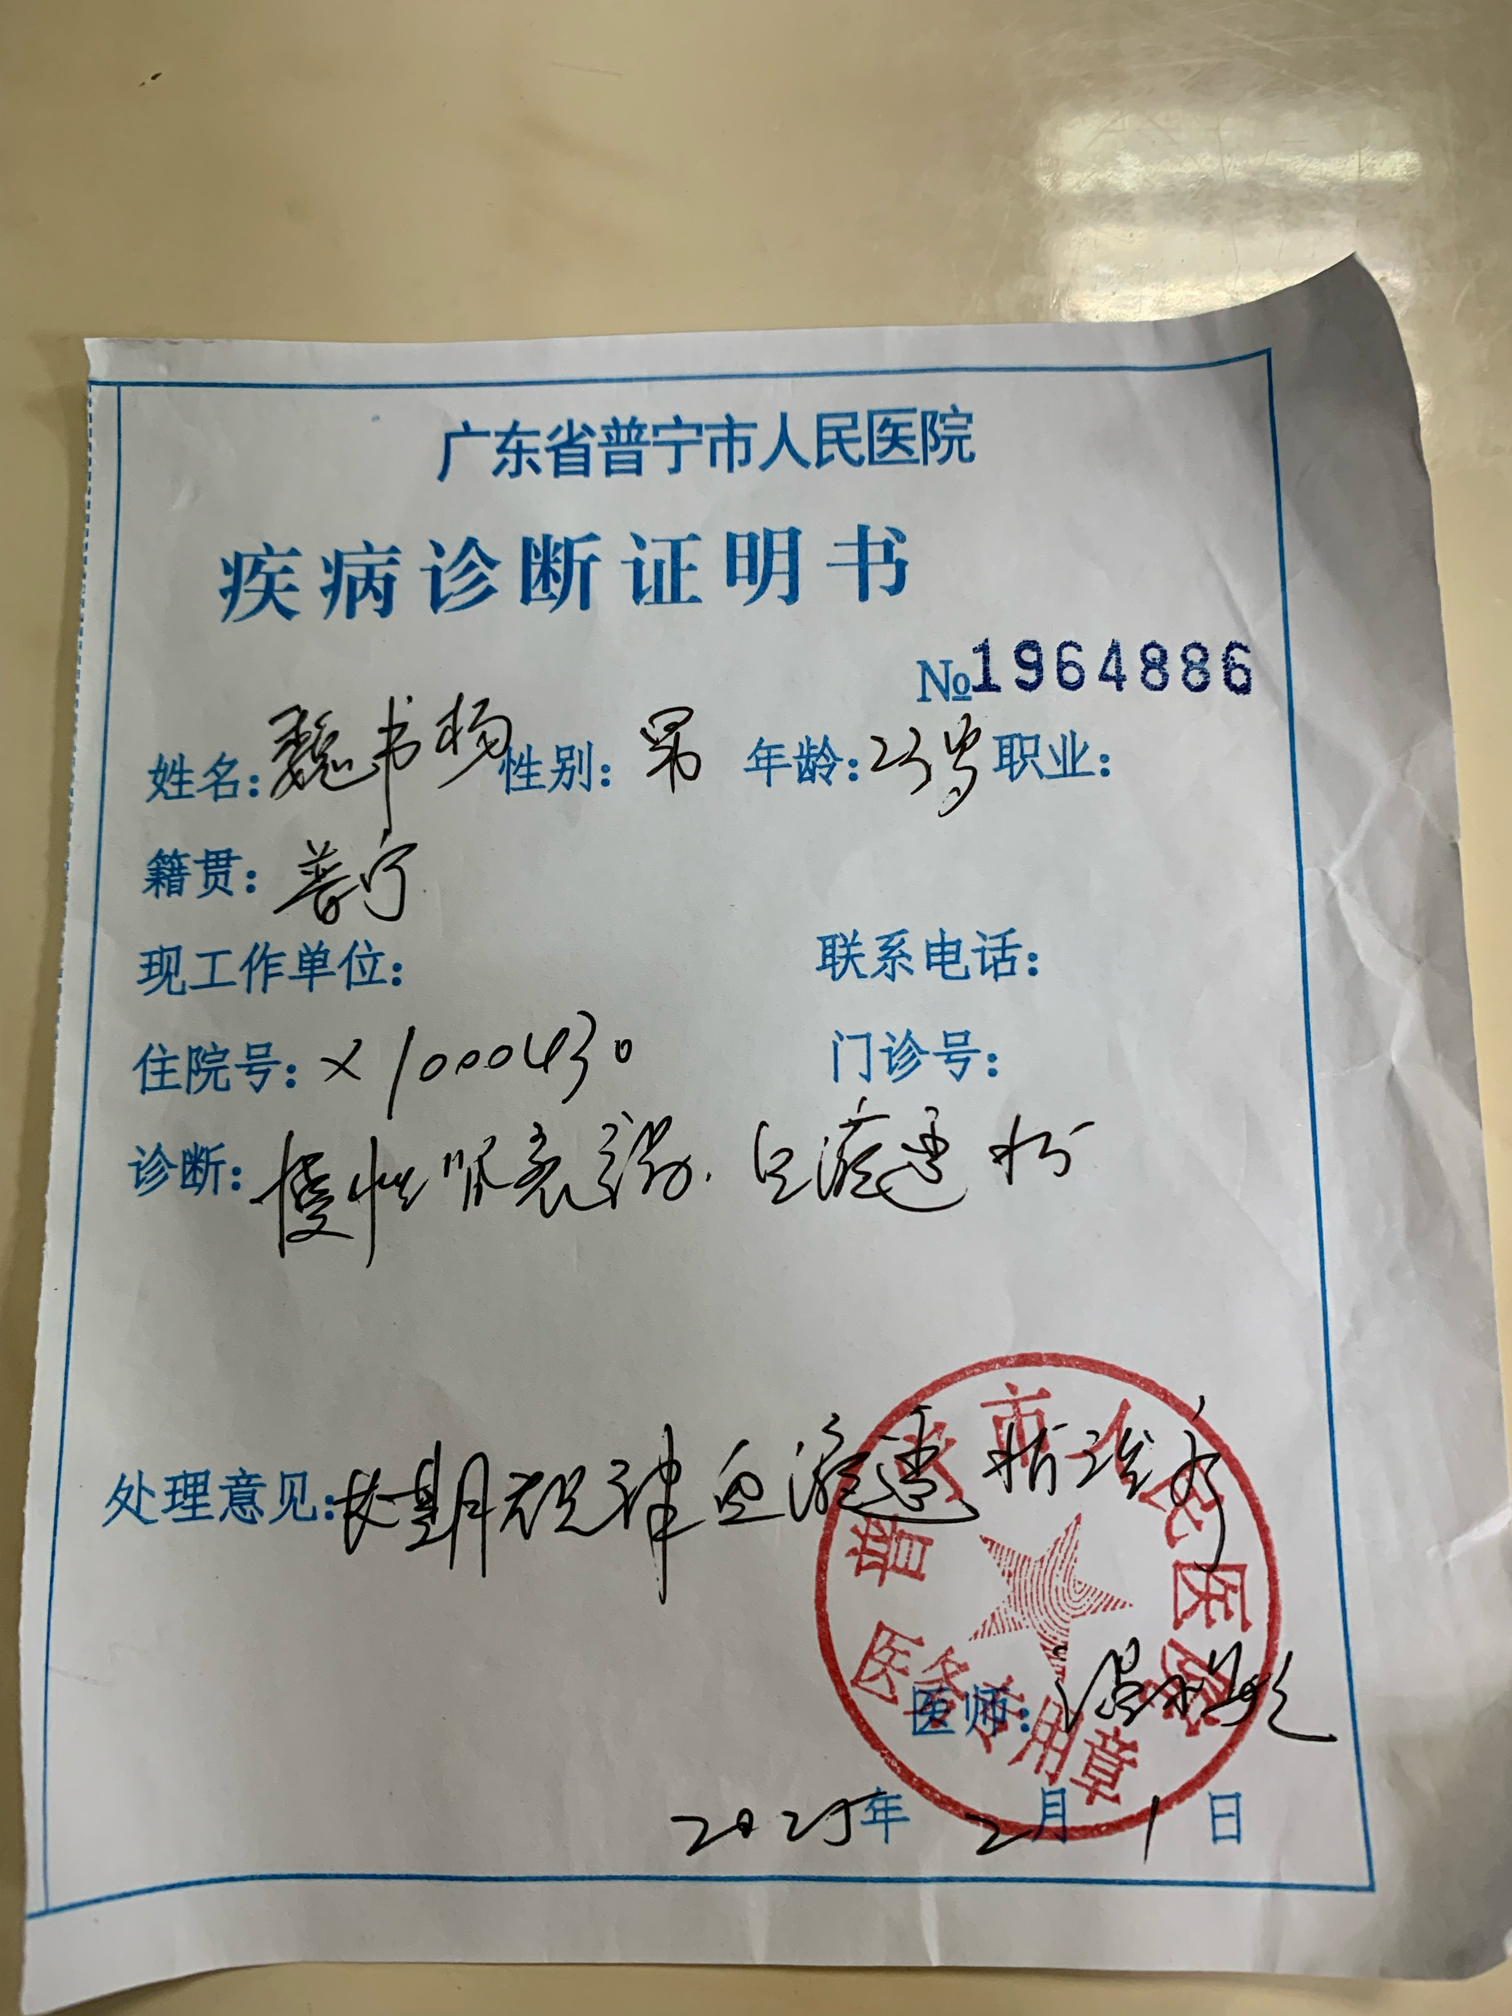 广东省普宁市人民医院
疾病诊断证明书
№1964886
姓名：魏书杨 性别：男 年龄：23岁 职业：
籍贯：普宁
现工作单位： 联系电话：
住院号：X1000430 门诊号：
诊断：慢性肾衰竭. 血液透析
处理意见：长期规律血液透析治疗
普宁市人民医院
医务专用章
医师：
2025年2月1日